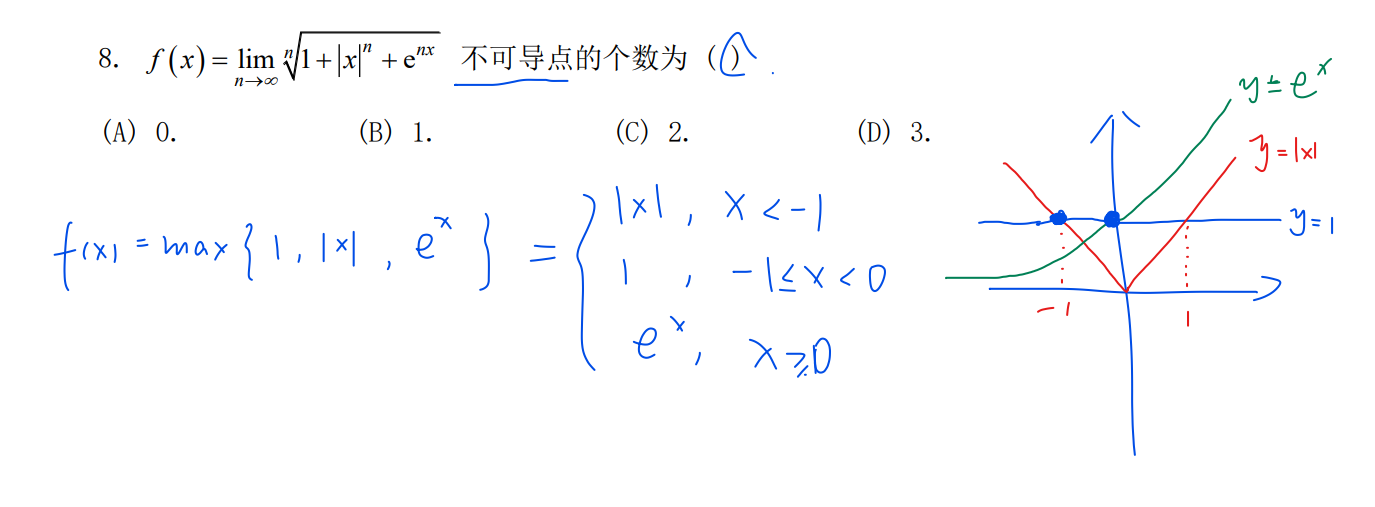 8. f(x)=lim n→∞ ⁿ√1+|x|ⁿ+eⁿˣ 不可导点的个数为（）.
(A) 0. (B) 1. (C) 2. (D) 3.
f(x) = max { 1, |x|, eˣ } = { |x|, x < -1
1, -1 ≤ x < 0
eˣ, x ⩾ 0
y = eˣ
y = |x|
y = 1
-1 1